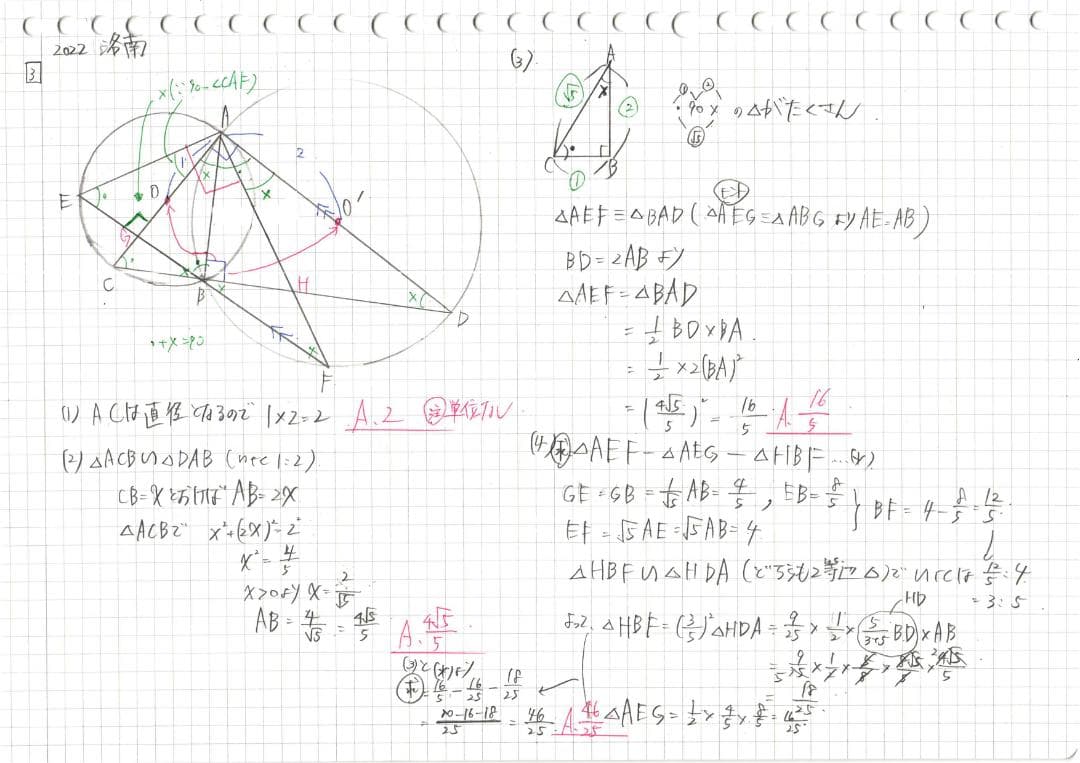 2022 洛南
3
x(∵90-∠CAF)
A
1
2
x
x
E
O
O'
G
C
x
B
x
H
x
D
x
F
・+x=90
(1) ACは直径となるので 1×2=2 A.2 注 単位ナシ
(2) △ACB∽△DAB (∽比 1:2)
CB=xとおけば AB=2x
△ACBで x²+(2x)²=2²
x²=4/5
x>0より x=2/√5
AB=4/√5=4√5/5
A. 4√5/5
(3).
A
√5
x
2
C
B
1
1 2
・90 x の△がたくさん.
√5
△AEF≡△BAD(△AEG≡△ABGより AE=AB)
BD=2ABより
△AEF=△BAD
=1/2 BD×BA.
=1/2×2(BA)²
=(4√5/5)²=16/5. A. 16/5
(4) 求 △AEF-△AEG-△HBF…(※)
GE=GB=1/√5 AB=4/5, EB=8/5
EF=√5AE=√5AB=4
} BF=4-8/5=12/5.
△HBF∽△HDA (どちらも2等辺△)で ∽比は 12/5:4
=3:5.
HD
よって、△HBF=(3/5)²△HDA=9/25×1/2×(5/3+5 BD)×AB
=9/25×1/2×5/8×8√5/5×4√5/5
=18/25.
△AEG=1/2×4/5×8/5=16/25.
(3)と(※)より
求=16/5-16/25-18/25
=80-16-18/25=46/25. A. 46/25